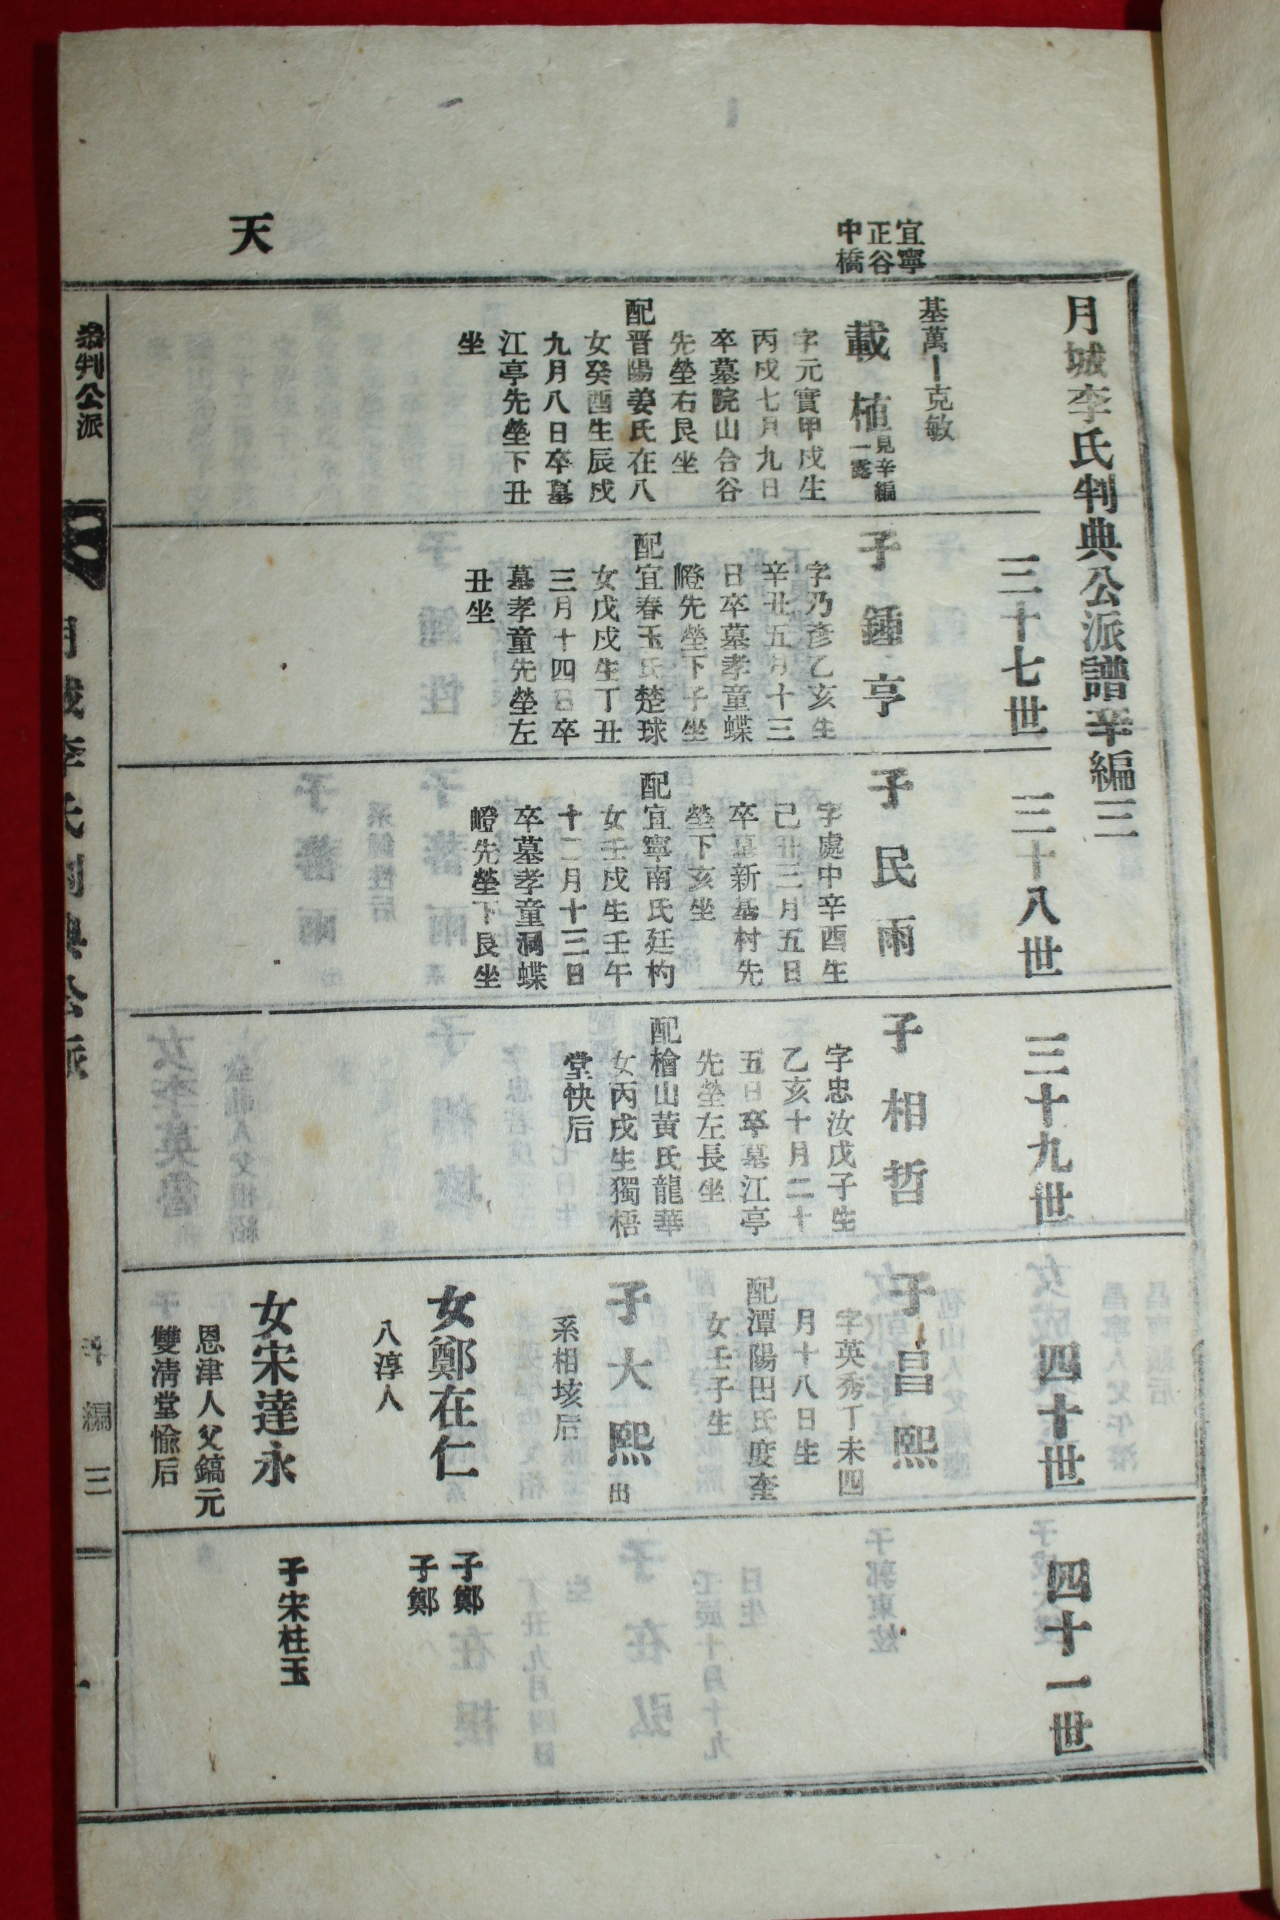 天
宜寧
正谷
中橋
月城李氏判典公派譜辛編三
三十七世
三十八世
三十九世
四十世
四十一世
基萬ー克敏
載植
見辛編
一露
字元實甲戌生
丙戌七月九日
卒墓院山合谷
先塋右艮坐
配晋陽姜氏在八
女癸酉生辰戌
九月八日卒墓
江亭先塋下丑
坐
子鍾亨
字乃彥乙亥生
辛丑五月十三
日卒墓孝童蝶
嶝先塋下子坐
配宜春玉氏楚球
女戊戌生丁丑
三月十四日卒
墓孝童先塋左
丑坐
子民雨
字處中辛酉生
己丑三月五日
卒墓新基村先
塋下亥坐
配宜寧南氏廷杓
女壬戌生壬午
十二月十三日
卒墓孝童洞蝶
嶝先塋下艮坐
子相哲
字忠汝戊子生
乙亥十月二十
五日卒墓江亭
先塋左長坐
配檜山黃氏龍華
女丙戌生獨梧
堂快后
子昌熙
字英秀丁未四
月十八日生
配潭陽田氏度奎
女壬子生
子大熙出
系相垓后
女鄭在仁
八淳人
女宋達永
恩津人父鎬元
雙淸堂愉后
子鄭
子鄭
子宋柱玉
判公派
月城李氏判典公派
辛編三